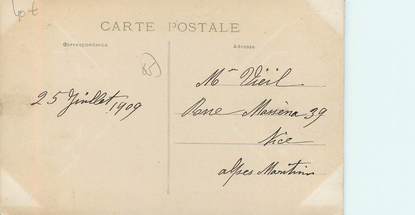 40 €
CARTE POSTALE
Correspondance
Adresse
85)
25 Juillet 1909
Mr Vieil
Rue Masséna 39
Nice
Alpes Maritimes